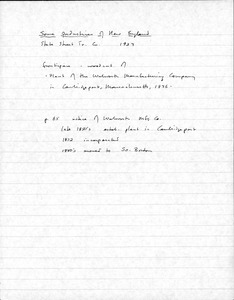 Some Industries of New England
State Street Tr. Co. 1923
frontispiece - woodcut of
"Plant of the Walworth Manufacturing Company
in Cambridgeport, Massachusetts, 1876"
p 65 of Walworth Mfg Co.
late plant in Cambridgeport
1872 incorporated
moved to So. Boston